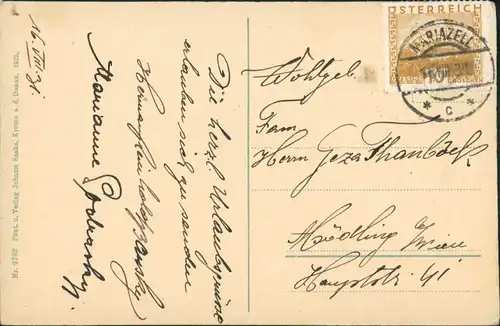 16. VIII. 31.
Die herzl. Urlaubsgrüsse
erlauben sich zu senden
Marianne
Nr. 2762 Phot. u. Verlag Johann Saska, Krems a. d. Donau. 1925.
ÖSTERREICH
MARIAZELL
* c *
Wohlgeb.
Fam
Herrn Geza Thanböck
Mödling b/ Wien
Hauptstr 41